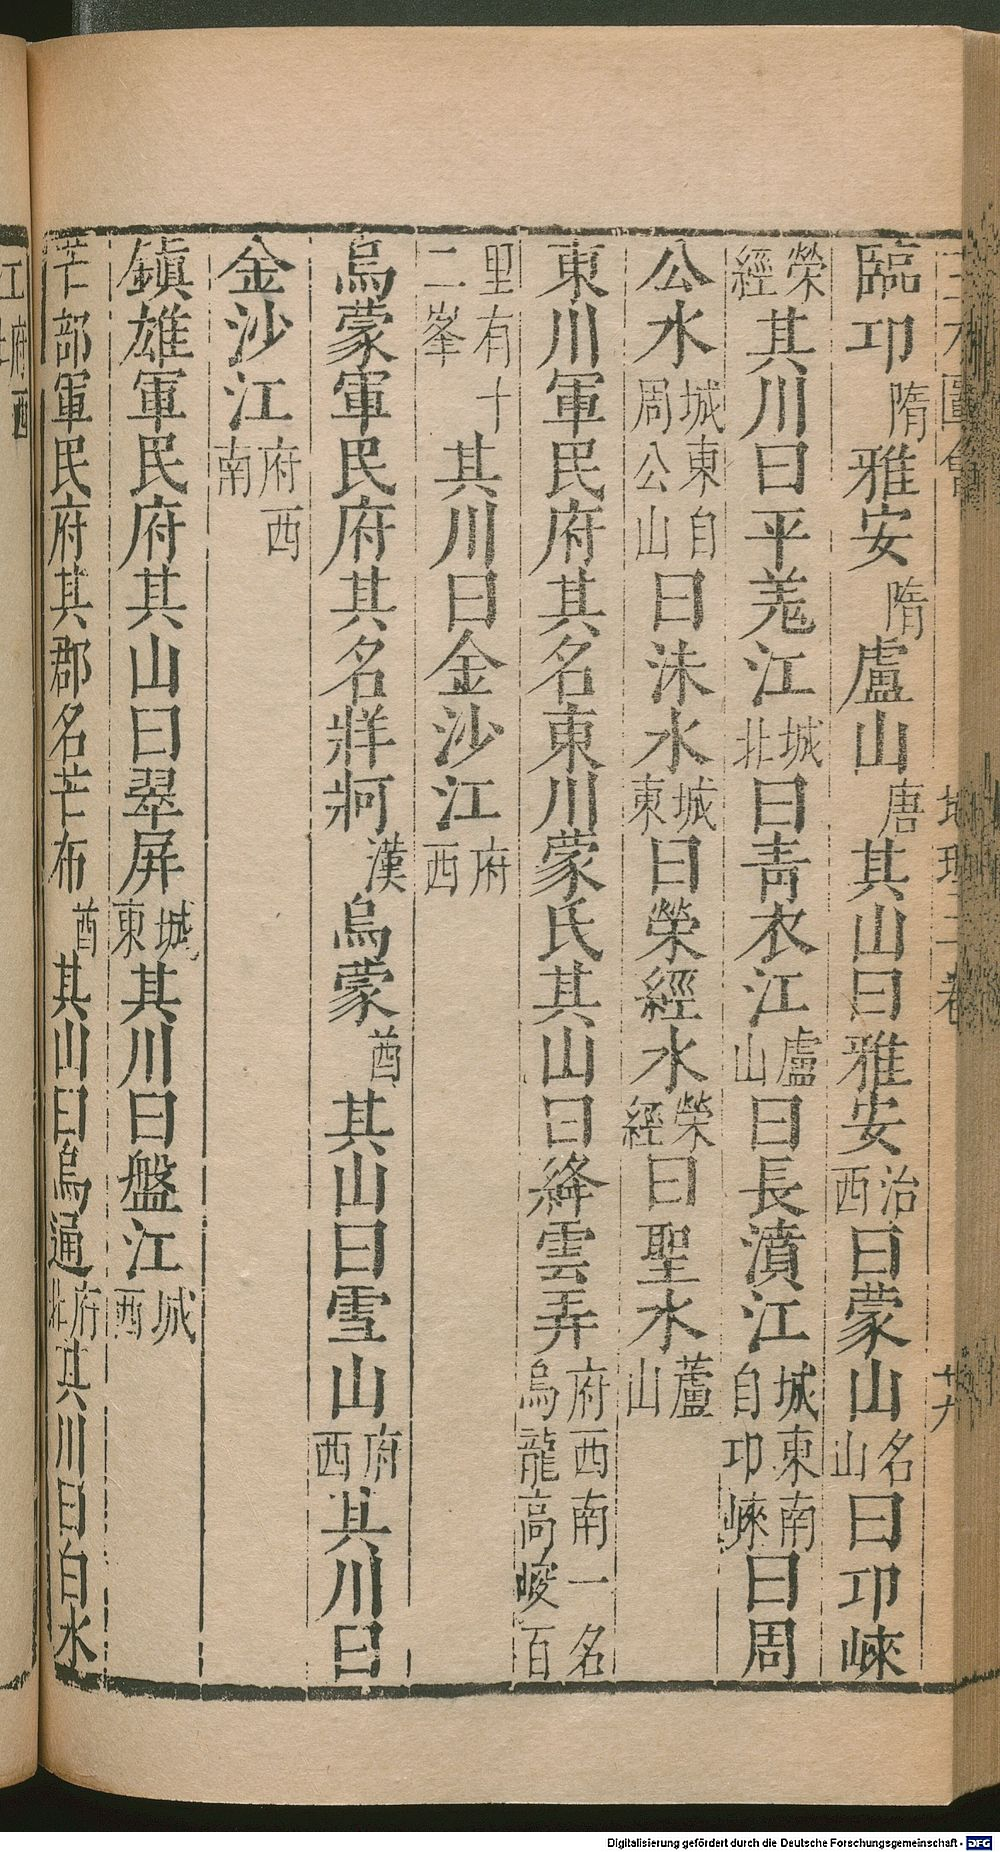 臨卭隋雅安隋盧山唐其山曰雅安治西曰蒙山名山曰卭崍
榮經其川曰平羌江城北曰青衣江盧山曰長濆江城東南自卭崍曰周
公水城東自周公山曰沫水城東曰榮經水榮經曰聖水蘆山
東川軍民府其名東川蒙氏其山曰絳雲弄府西南一名烏龍高峻百
里有十二峯其川曰金沙江府西
烏蒙軍民府其名牂牁漢烏蒙酋其山曰雪山府西其川曰
金沙江府西南
鎮雄軍民府其山曰翠屏城東其川曰盤江城西
芒部軍民府其郡名芒布酋其山曰烏通府北其川曰白水
江府西
Digitalisierung gefördert durch die Deutsche Forschungsgemeinschaft - DFG